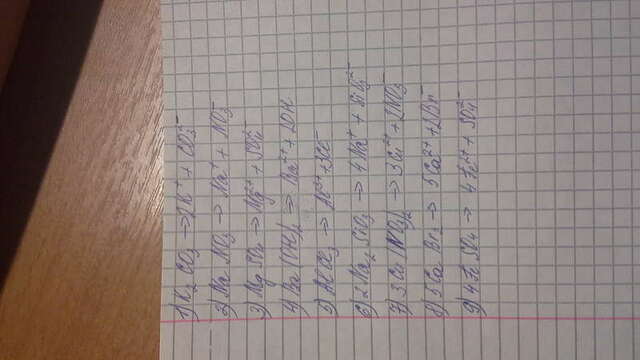 1) K₂ CO₃ → 2K⁺ + CO₃²⁻
2) Na NO₃ → Na⁺ + NO₃⁻
3) Mg SO₄ → Mg²⁺ + SO₄²⁻
4) Ba (OH)₂ → Ba²⁺ + 2OH⁻
5) AlCl₃ → Al³⁺ + 3Cl⁻
6) 2 Na₂ SiO₃ → 4Na⁺ + SiO₃²⁻
7) 3 Cu (NO₃)₂ → 3Cu²⁺ + 2NO₃⁻
8) 5 Ca Br₂ → 5Ca²⁺ +
9) 4 Fe SO₄ → 4Fe²⁺ + SO₄²⁻